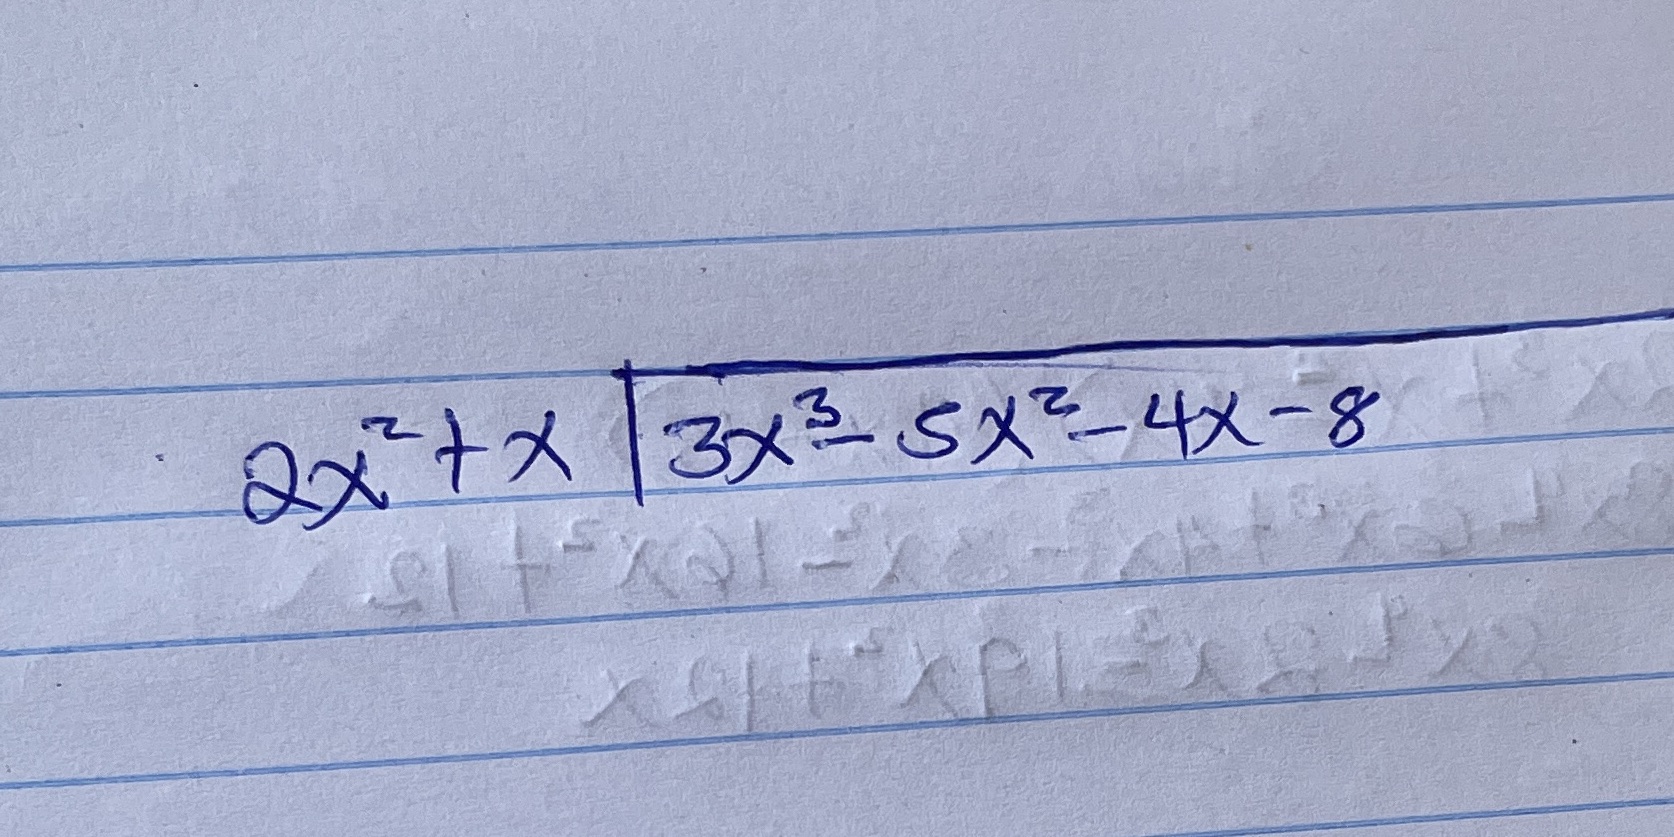 2x² + x | 3x³ - 5x² - 4x - 8